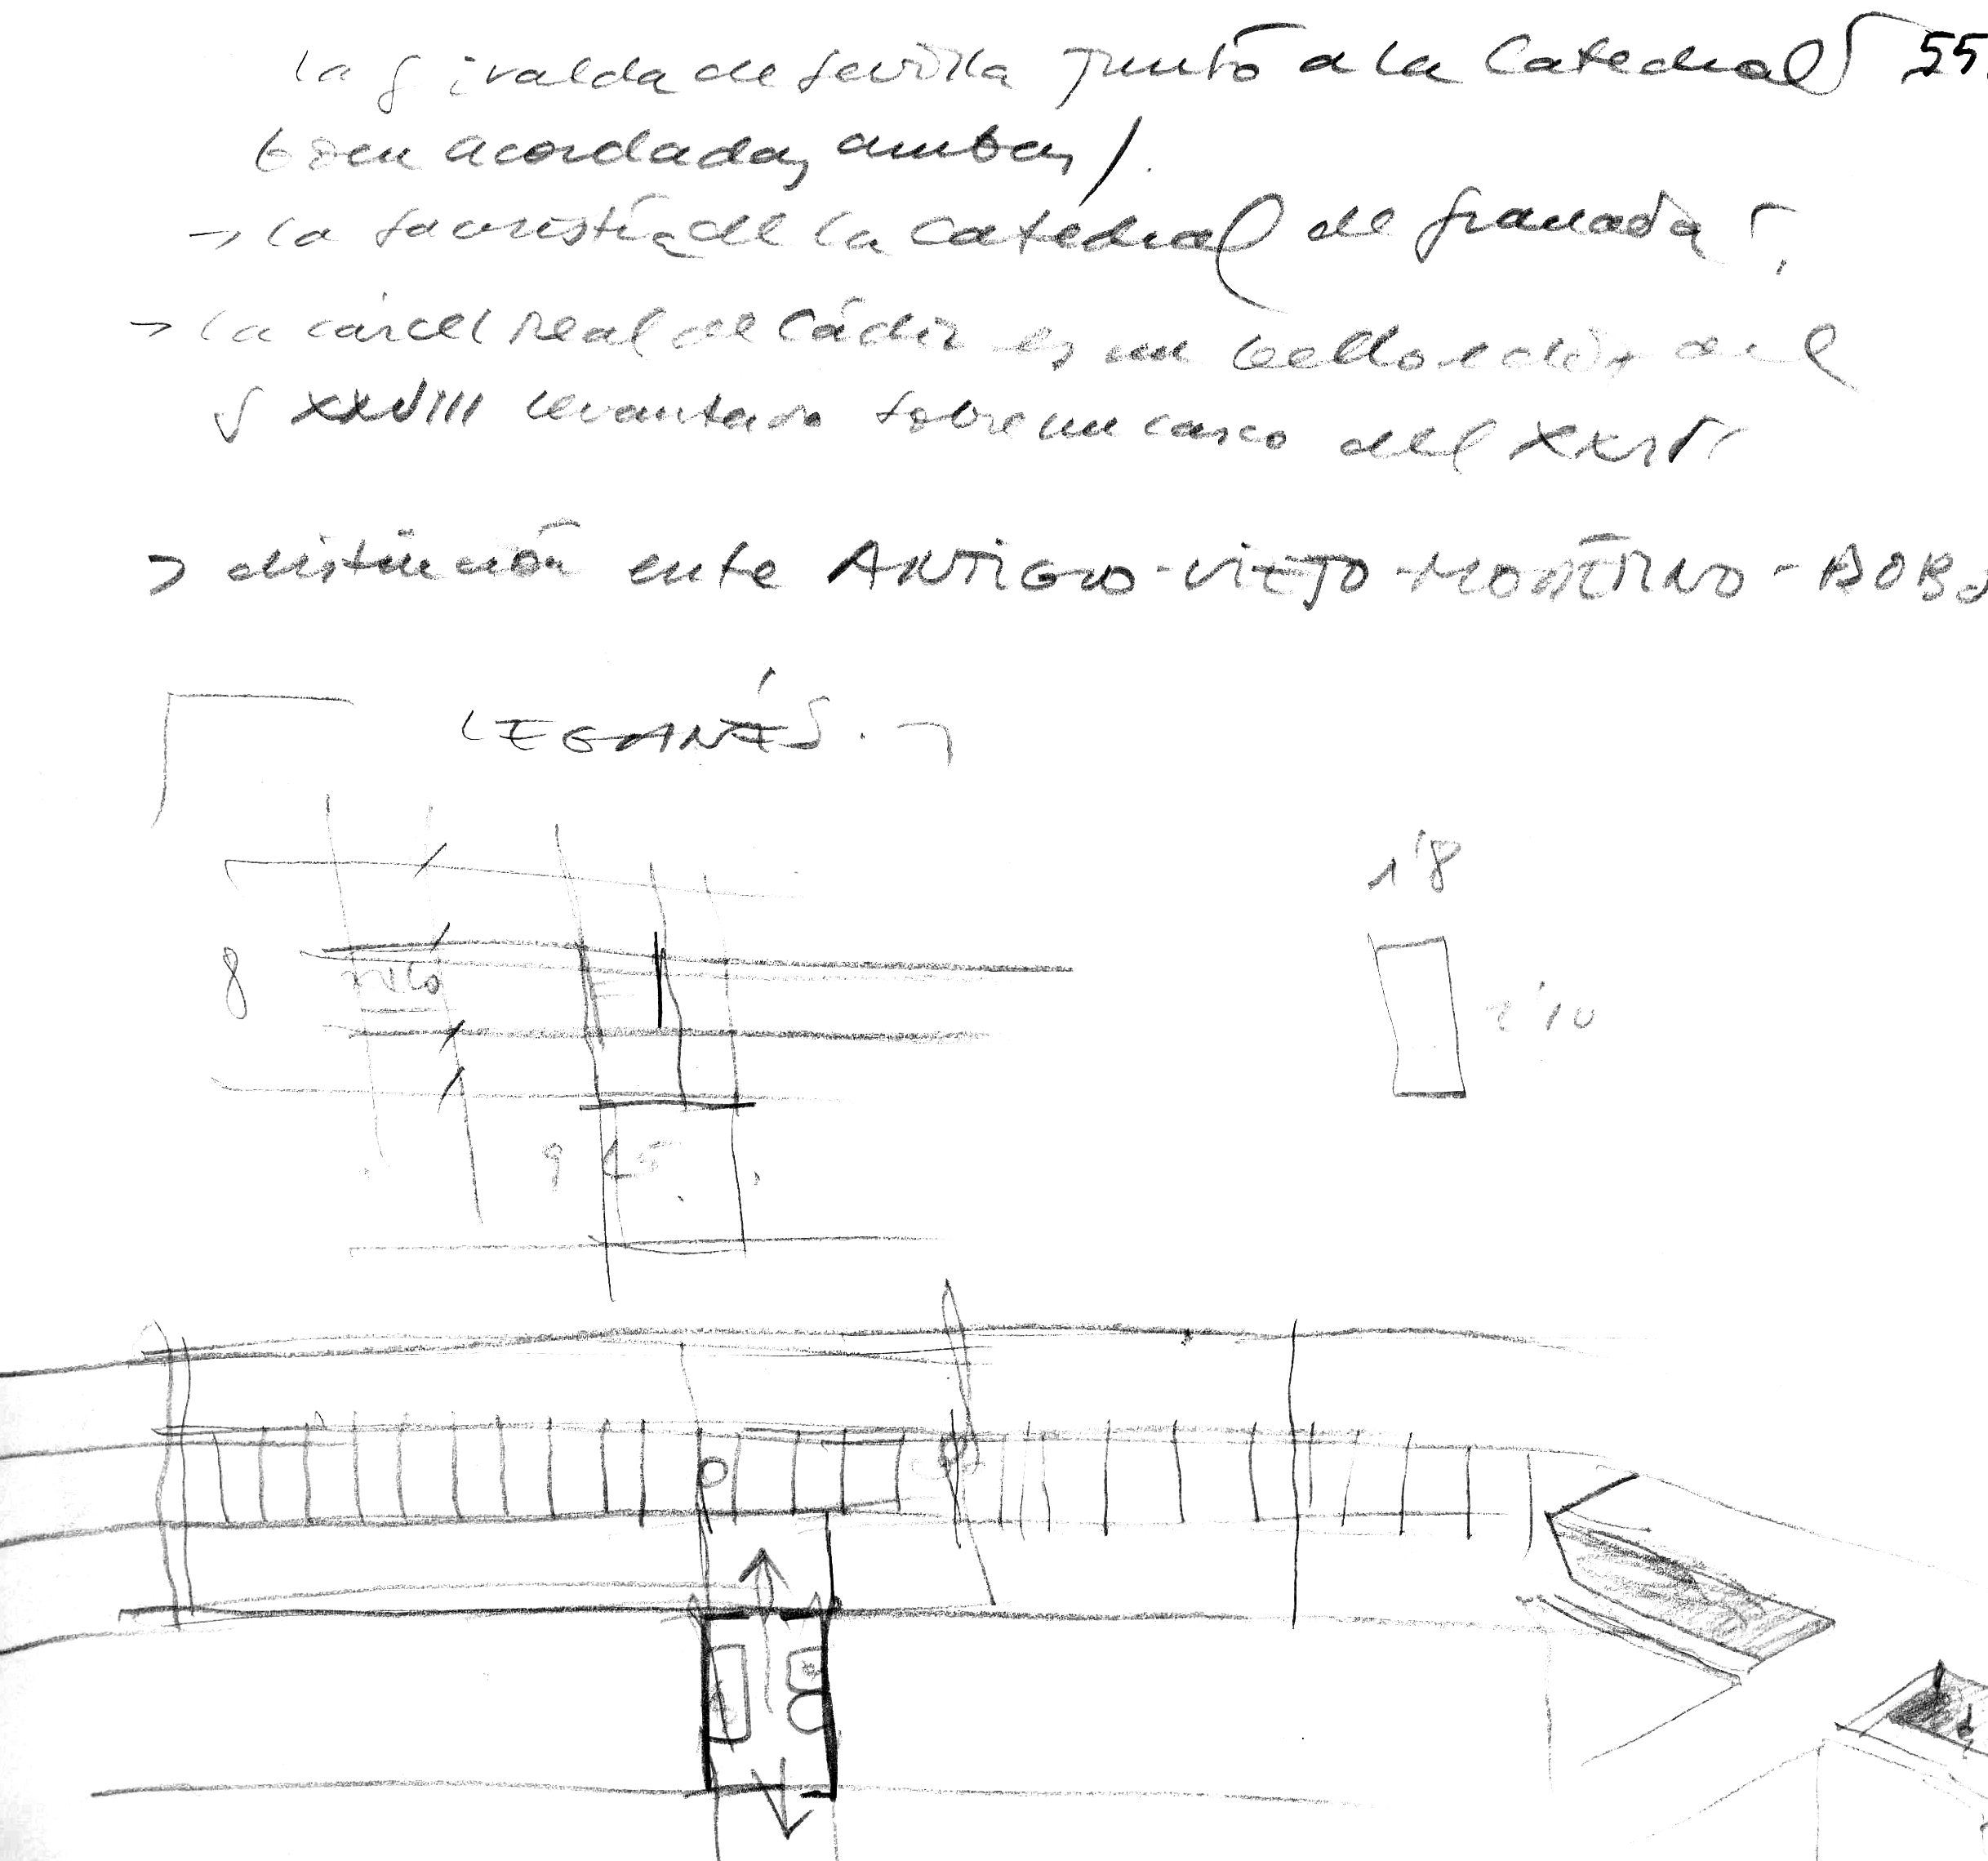 la giralda de sevilla junto a la Catedral 55.
bien acordadas ambas/.
→ la sacristía de la Catedral de granada
→ la cárcel real de Cádiz es un bello edificio del
S XXVIII levantado sobre un casco del
> distinción ente ANTIGUO-VIEJO-MODERNO-BOBO
LEGANÉS.
1'8
8
patio
1'10
9 45